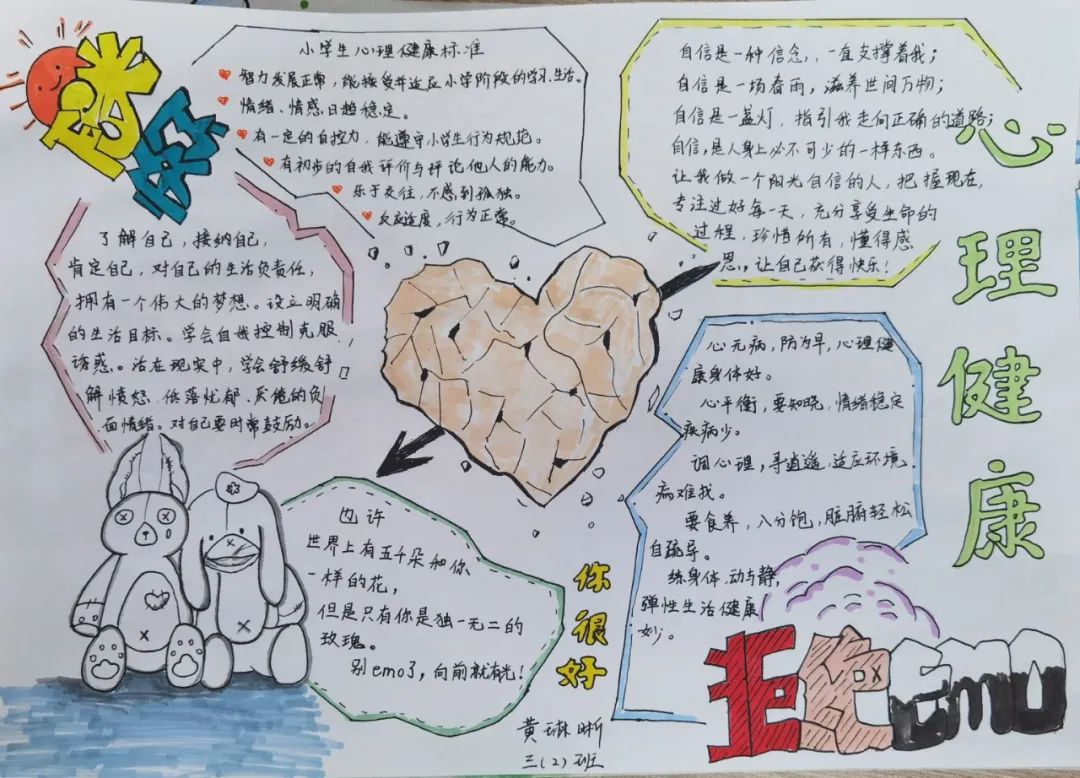 阳光
小学生心理健康标准
智力发展正常，能接受并适应小学阶段的学习、生活。
情绪、情感日趋稳定。
有一定的自控力，能遵守小学生行为规范。
有初步的自我评价与评论他人的能力。
乐于交往，不感到孤独。
反应适度，行为正常。
自信是一种信念，，一直支撑着我；
自信是一场春雨，滋养世间万物；
自信是一盏灯，指引我走向正确的道路；
自信，是人身上必不可少的一样东西。
让我做一个阳光自信的人，把握现在，
专注过好每一天，充分享受生命的
过程，珍惜所有，懂得感
恩，让自己获得快乐！
心
理
健
康
了解自己，接纳自己，
肯定自己，对自己的生活负责任，
拥有一个伟大的梦想。设立明确
的生活目标。学会自我控制克服
诱惑。活在现实中，学会舒缓舒
解愤怒、低落忧郁、厌倦的负
面情绪。对自己要时常鼓励。
心元病，防为早，心理健
康身体好。
心平衡，要知晓，情绪稳定
疾病少。
调心理，寻逍遥，适应环境
病难找。
要食养，八分饱，脏腑轻松
自疏导。
练身体，动与静，
弹性生活健康
妙。
也许
世界上有五千朵和你
一样的花，
但是只有你是独一无二的
玫瑰。
别emo了，向前就有光！
你
很
好
拒绝emo
黄琳晰
三（2）班